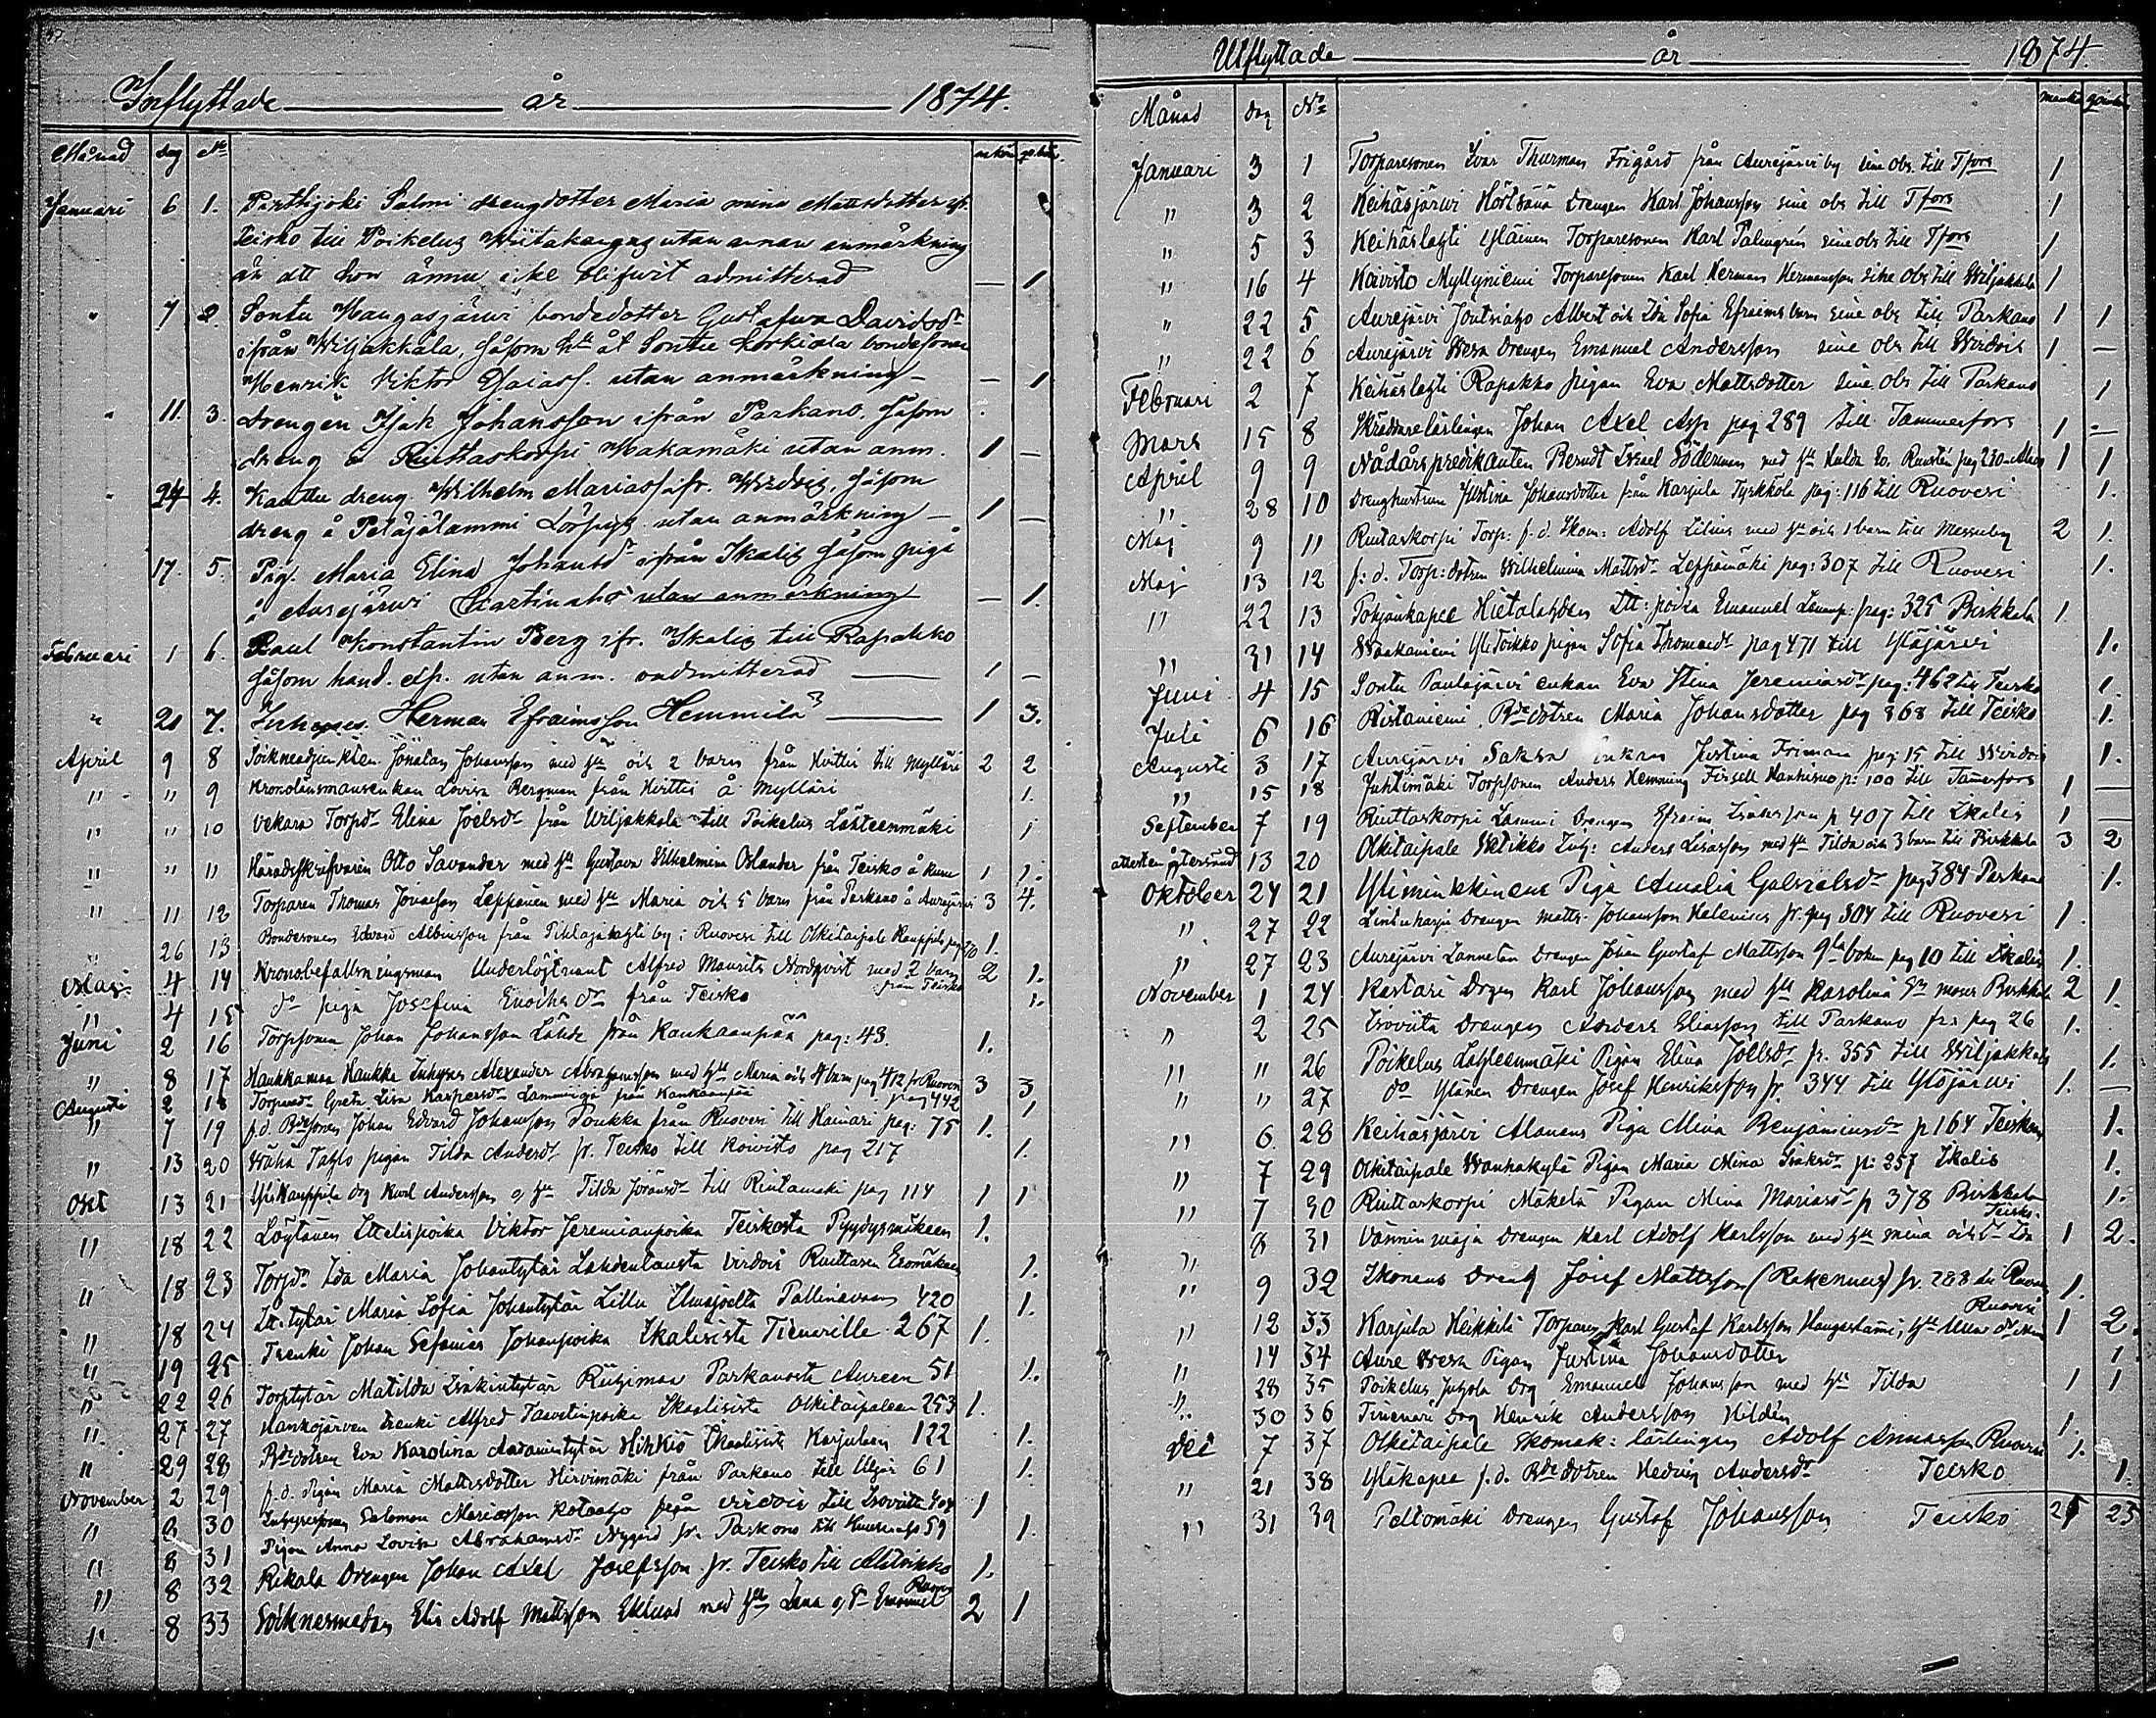 Inflyttade år 1874.
Månad dag No mankön qvinkön
Januari 6 1. Parthjoki Salomi drengdotter Maria mina Mattsdotter ifr.
Teisko till Poikelus Wiitakangas utan annan anmärkning
än att hon ännu icke blifwit admitterad — 1
" 7 2. Sontu Mangasjärvi bondedotter Gustafwa Davidsdr
ifrån Wiljakkala, såsom hu åt Sontu Korkiala bondesonen
Henrik Viktor Esaiass. utan anmärkning — 1
" 11. 3. Drengen Isak Johansson ifrån Parkano, såsom
dreng å Ruittaskorpi Hakamäki utan anm. 1 —
" 24 4. Kanttu dreng Wilhelm Mariass. ifr. Wirdois, såsom
dreng å Petäjälammi utan anmärkning — 1 —
17. 5. Pig. Maria Elina Johansdr ifrån Ikalis såsom piga
å Aurejärwi utan anmärkning — 1.
Februari 1 6. Paul Konstantin Berg ifr. Ikalis till Rapakko
såsom hand. utan anm. admitterad — 1 —
" 20 7. Inhyses Herman Efraimsson Hemmilä — 1 3.
April 9 8 Socknedjeknen Jonatan Johansson med hu och 2 barn från Hvittis till Mylläri 2 2
" " 9 Kronolänsmansenkan Lovisa Bergman från Hvittis å Mylläri 1.
" " 10 Vekara Torpdr Elina Joelsdr från Wiljakkala till Poikelus Lähteenmäki 1
" " 11 Häradsskrifvaren Otto Savander med hu Gustava Wilhelmina Oslander från Teisko å Kuru 1 1.
" 11 12 Torparen Thomas Jonasson Leppänen med hu Maria och 5 barn från Parkano å Aurejärvi 3 4.
" 26 13 Bondesonen Edvard Albinsson från by i Ruovesi till Olkitaipale Kauppila pag 1.
Maj 4 14 Kronobefallningsman Underlöjtnant Alfred Maurits Nordqvist med 2 barn från Teisko 2 1.
" 4 15 do piga Josefina Enochsdr från Teisko 1.
Juni 2 16 Torpsonen Johan Johansson Lähde från Kankaanpää pag: 43. 1.
" 8 17 Haukkamaa Haukka Inhyses Alexander Abrahamsson med hu Maria och 4 barn pag 412 fr Ruovesi 3 3
Augusti 2 18 Torpdr Greta Lisa Kaspersdr från Kankaanpää pag 442 1
" 7 19 f.d. Bdesonen Johan Edvard Johansson Poukka från Ruovesi till Hainari pag: 75 1.
" 13 20 Wähä Tahlo pigan Tilda Andersdr fr. Teisko till Koivisto pag 217 1.
Okt 13 21 Yli Kauppila Drg Karl Andersson o hu Tilda Joransdr till pag 114 1 1
" 18 22 Löytänen Ittelispoika Viktor Jeremianpoika Teiskosta Pyydysmäkeen 1.
" 18 23 Torpdr Ida Maria Johantytär Lahdentausta Virdois Ruittaren Eeromäkeen 1.
" 18 24 Itt. tytär Maria Sofia Johantytär Lilla Pallinavaara 420 1.
" 19 25 Trenki Johan Sefanias Johanpoika Ikalisista Tienarille 267 1.
" 22 26 Torptytär Matilda Isakintytär Riihimaa Parkanosta Aureen 51 1.
" 27 27 Hankojärven trenki Alfred Taavetinpoika Ikaalisista Olkitaipaleen 253 1.
" 29 28 Bdedotren Eva Karolina Aadamintytär Hihkiö Ikaalisista Karjulaan 122 1.
November 2 29 f.d. Pigan Maria Mattsdotter Hirvimäki från Parkano till 61 1.
" 2 30 Inhysesson Salomon Mariasson Kotaaho från Virdois till Isoviita 1
" 8 31 Pigan Anna Lovisa Abrahamsdr Nygård fr. Parkano till 59 1.
" 8 32 Rikala Drengen Johan Axel Josefsson fr. Teisko till 1.
" 8 33 Socknesmeden Elis Adolf Mattsson Eklund med hu Lena o dr Emanuel 2 1
Utflyttade år 1874.
Månad dag No mankön qvinkön
Januari 3 1 Torparesonen Ivar Thurman Frigård från Aurejärvi by sine obs. till Tfors 1
" 3 2 Keihäsjärvi Hörtsänä Drengen Karl Johansson sine obs till Tfors 1
" 5 3 Keihäslahti Yläinen Torparesonen Karl Palmgrén sine obs till Tfors 1
" 16 4 Koivisto Myllyniemi Torparesonen Karl Herman Hermansson sine obs till Wiljakkala 1
" 22 5 Aurejärvi Joutsiaho Albert och Ida Sofia Efraims barn sine obs till Parkano 1 1
" 22 6 Aurejärvi Wesa Drengen Emanuel Andersson sine obs till Wirdois 1 —
Februari 2 7 Keihäslahti Rapakko pigan Eva Mattsdotter sine obs till Parkano 1
Mars 15 8 Skräddarelärlingen Johan Axel Asp pag 289 till Tammerfors 1 —
April 9 9 Nådårspredikanten Berndt Israel Söderman med hu Hulda Ev. pag 230 1 1
" 28 10 Drenghustrun Justina Johansdotter från Karjula Tyrkkölä pag: 116 till Ruovesi 1.
Maj 9 11 Ruittaskorpi Torp: f.d. Skom: Adolf Lilius med hu och 1 barn till Messuby 2 1.
Maj 13 12 f: d. Torp: dotren Wilhelmina Mattsdr Leppämäki pag: 307 till Ruovesi 1.
" 22 13 Pohjankapee Hietalahden Itt: poika Emanuel pag: 325 Birkkala 1.
" 31 14 Waakaniemi Yli Toikko pigan Sofia Thomasdr pag 471 till Ylöjärvi 1.
Juni 4 15 Sontu Paulajärvi enkan Eva Stina Jeremiasdr pag: 462 till Teisko 1.
Juli 6 16 Ristaniemi Bdedotren Maria Johansdotter pag 368 till Teisko 1.
Augusti 3 17 Aurejärvi Saksa enkan Justina Friman pag 15 till Wirdois 1.
" 15 18 Juhtimäki Torpsonen Anders Hemming Firsell p: 100 till Tammerfors 1 —
September 7 19 Ruittaskorpi Lammi Drengen Efraim Isaksson p 407 till Ikalis 1 —
attesten återsänd 13 20 Olkitaipale Inh: Anders Lisasson med hu Tilda och 3 barn till Birkkala 3 2
Oktober 24 21 Yliminkkinens Piga Amalia Gabrielsdr pag 384 Parkano 1.
" 27 22 Lintuharju Drengen Matts Johansson Helenius fr. pag 304 till Ruovesi 1.
" 27 23 Aurejärvi Lannetan Drengen Johan Gustaf Mattsson gla boken pag 10 till Ikalis 1.
November 1 24 Kastari Drgen Karl Johansson med hu Karolina Birkkala 2 1.
" 2 25 Isoviita Drengen Anders Eliasson till Parkano fr. pag 26 1.
" " 26 Poikelus Lähteenmäki Pigan Elina Joelsdr fr. 355 till Wiljakkala 1.
" " 27 do Ylänen Drengen Josef Henriksson fr. 344 till Ylöjärvi 1. —
" 6 28 Keihäsjärvi Alanens Piga Mina Benjaminsdr p 164 Teisko 1.
" 7 29 Olkitaipale Wanhakylä Pigan Maria Mina Isaksdr p: 257 Ikalis 1.
" 7 30 Ruittaskorpi Mäkelä Pigan Mina Mariasdr p 378 Birkkala 1.
" 8 31 Vänninmaja Drengen Karl Adolf Karlsson med hu Mina och dr Ida Teisko. 1 2.
" 9 32 Ikonens Dreng Josef Mattsson (Rakennus) fr. 288 till Ruovesi 1.
" 12 33 Karjula Heikkilä Torparen Karl Gustaf Karlsson Haugastami, hu Ruovesi 1 2.
" 14 34 Aure Wesa Pigan Justina Johansdotter 1
" 28 35 Poikelus Juhola Drg Emanuel Johansson med hu Tilda 1 1
" 30 36 Tienari Drg Henrik Andersson Hildén 1.
Dec 7 37 Olkitaipale Skomak: lärlingen Adolf Annasson Ruovesi 1.
" 21 38 Yläkapee f.d. Bdedotren Hedvig Andersdr Teisko 1.
" 31 39 Peltomäki Drengen Gustaf Johansson Teisko 25 25